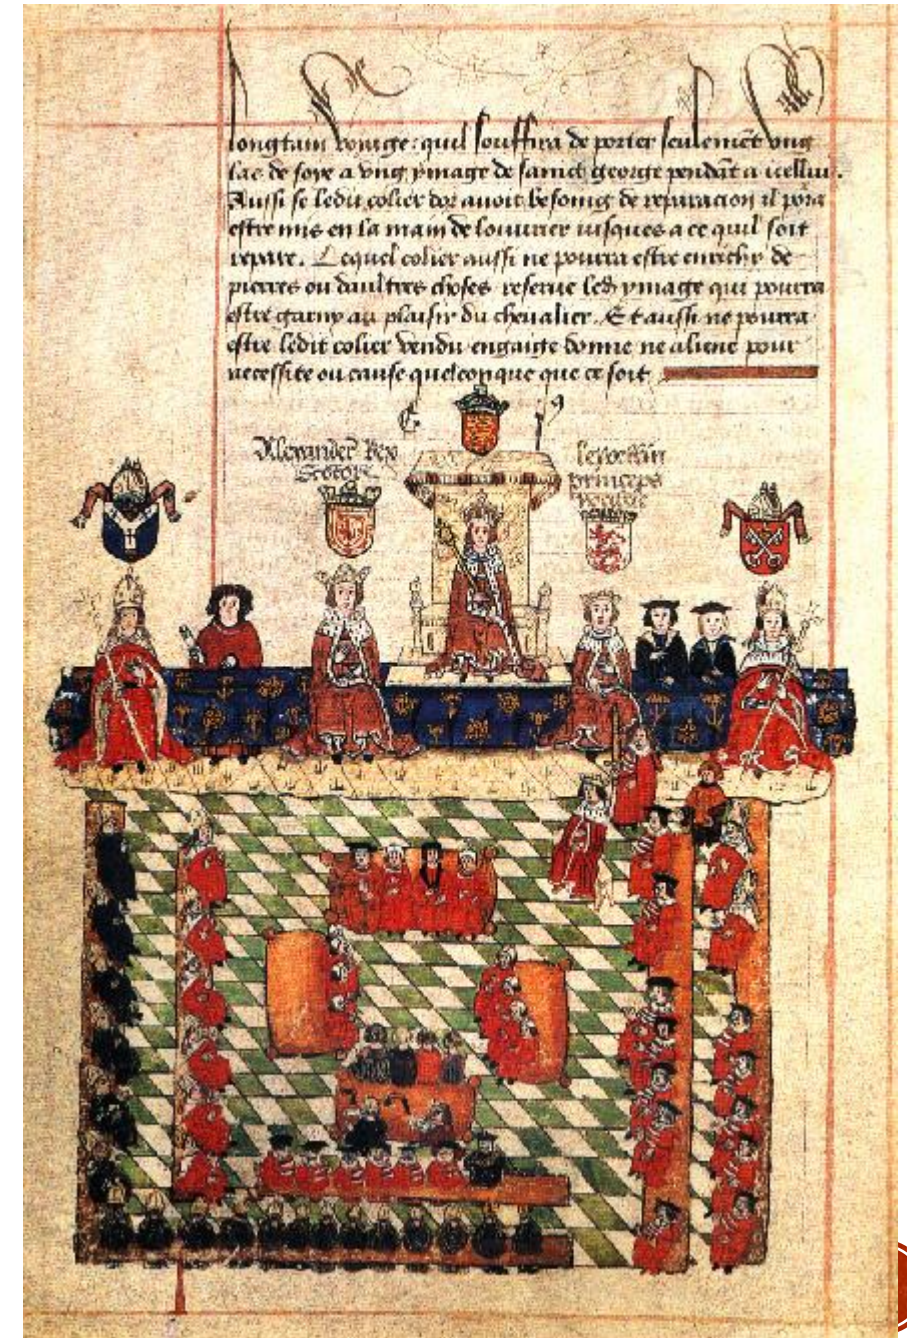 longtain voiaige: quil souffira de porter seulemēt vng
lac de soye a vng ymage de sainct george pendāt a icellui.
Aussi se ledit colier dor auoit besoing de reparacion il pora
estre mis en la main de louurier iusques a ce quil soit
repare. Lequel colier aussi ne pourra estre enrichy de
pierres ou daultres choses reserue led ymage qui pourra
estre garny au plaisir du cheualier. Et aussi ne pourra
estre ledit colier vendu engaige donne ne aliene pour
necessite ou cause quelconque que ce soit
Alexander Rex
Scotor
princeps